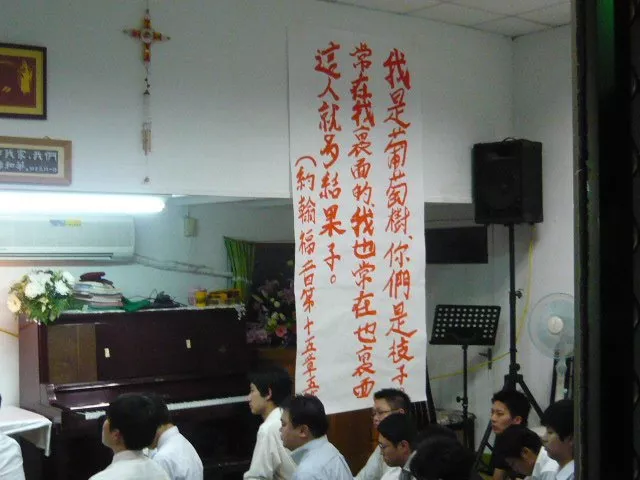 我是葡萄樹、你們是枝子
常在我裏面的、我也常在他裏面
這人就多結果子。
(約翰福音第十五章五
我家,我們